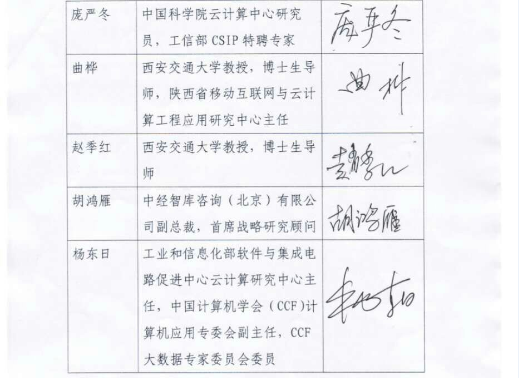 庞严冬
中国科学院云计算中心研究
员，工信部 CSIP 特聘专家
庞严冬
曲桦
西安交通大学教授，博士生导
师，陕西省移动互联网与云计
算工程应用研究中心主任
曲桦
赵季红
西安交通大学教授，博士生导
师
胡鸿雁
中经智库咨询（北京）有限公
司副总裁，首席战略研究顾问
胡鸿雁
杨东日
工业和信息化部软件与集成电
路促进中心云计算研究中心主
任，中国计算机学会（CCF)计
算机应用专委会副主任，CCF
大数据专家委员会委员
杨东日